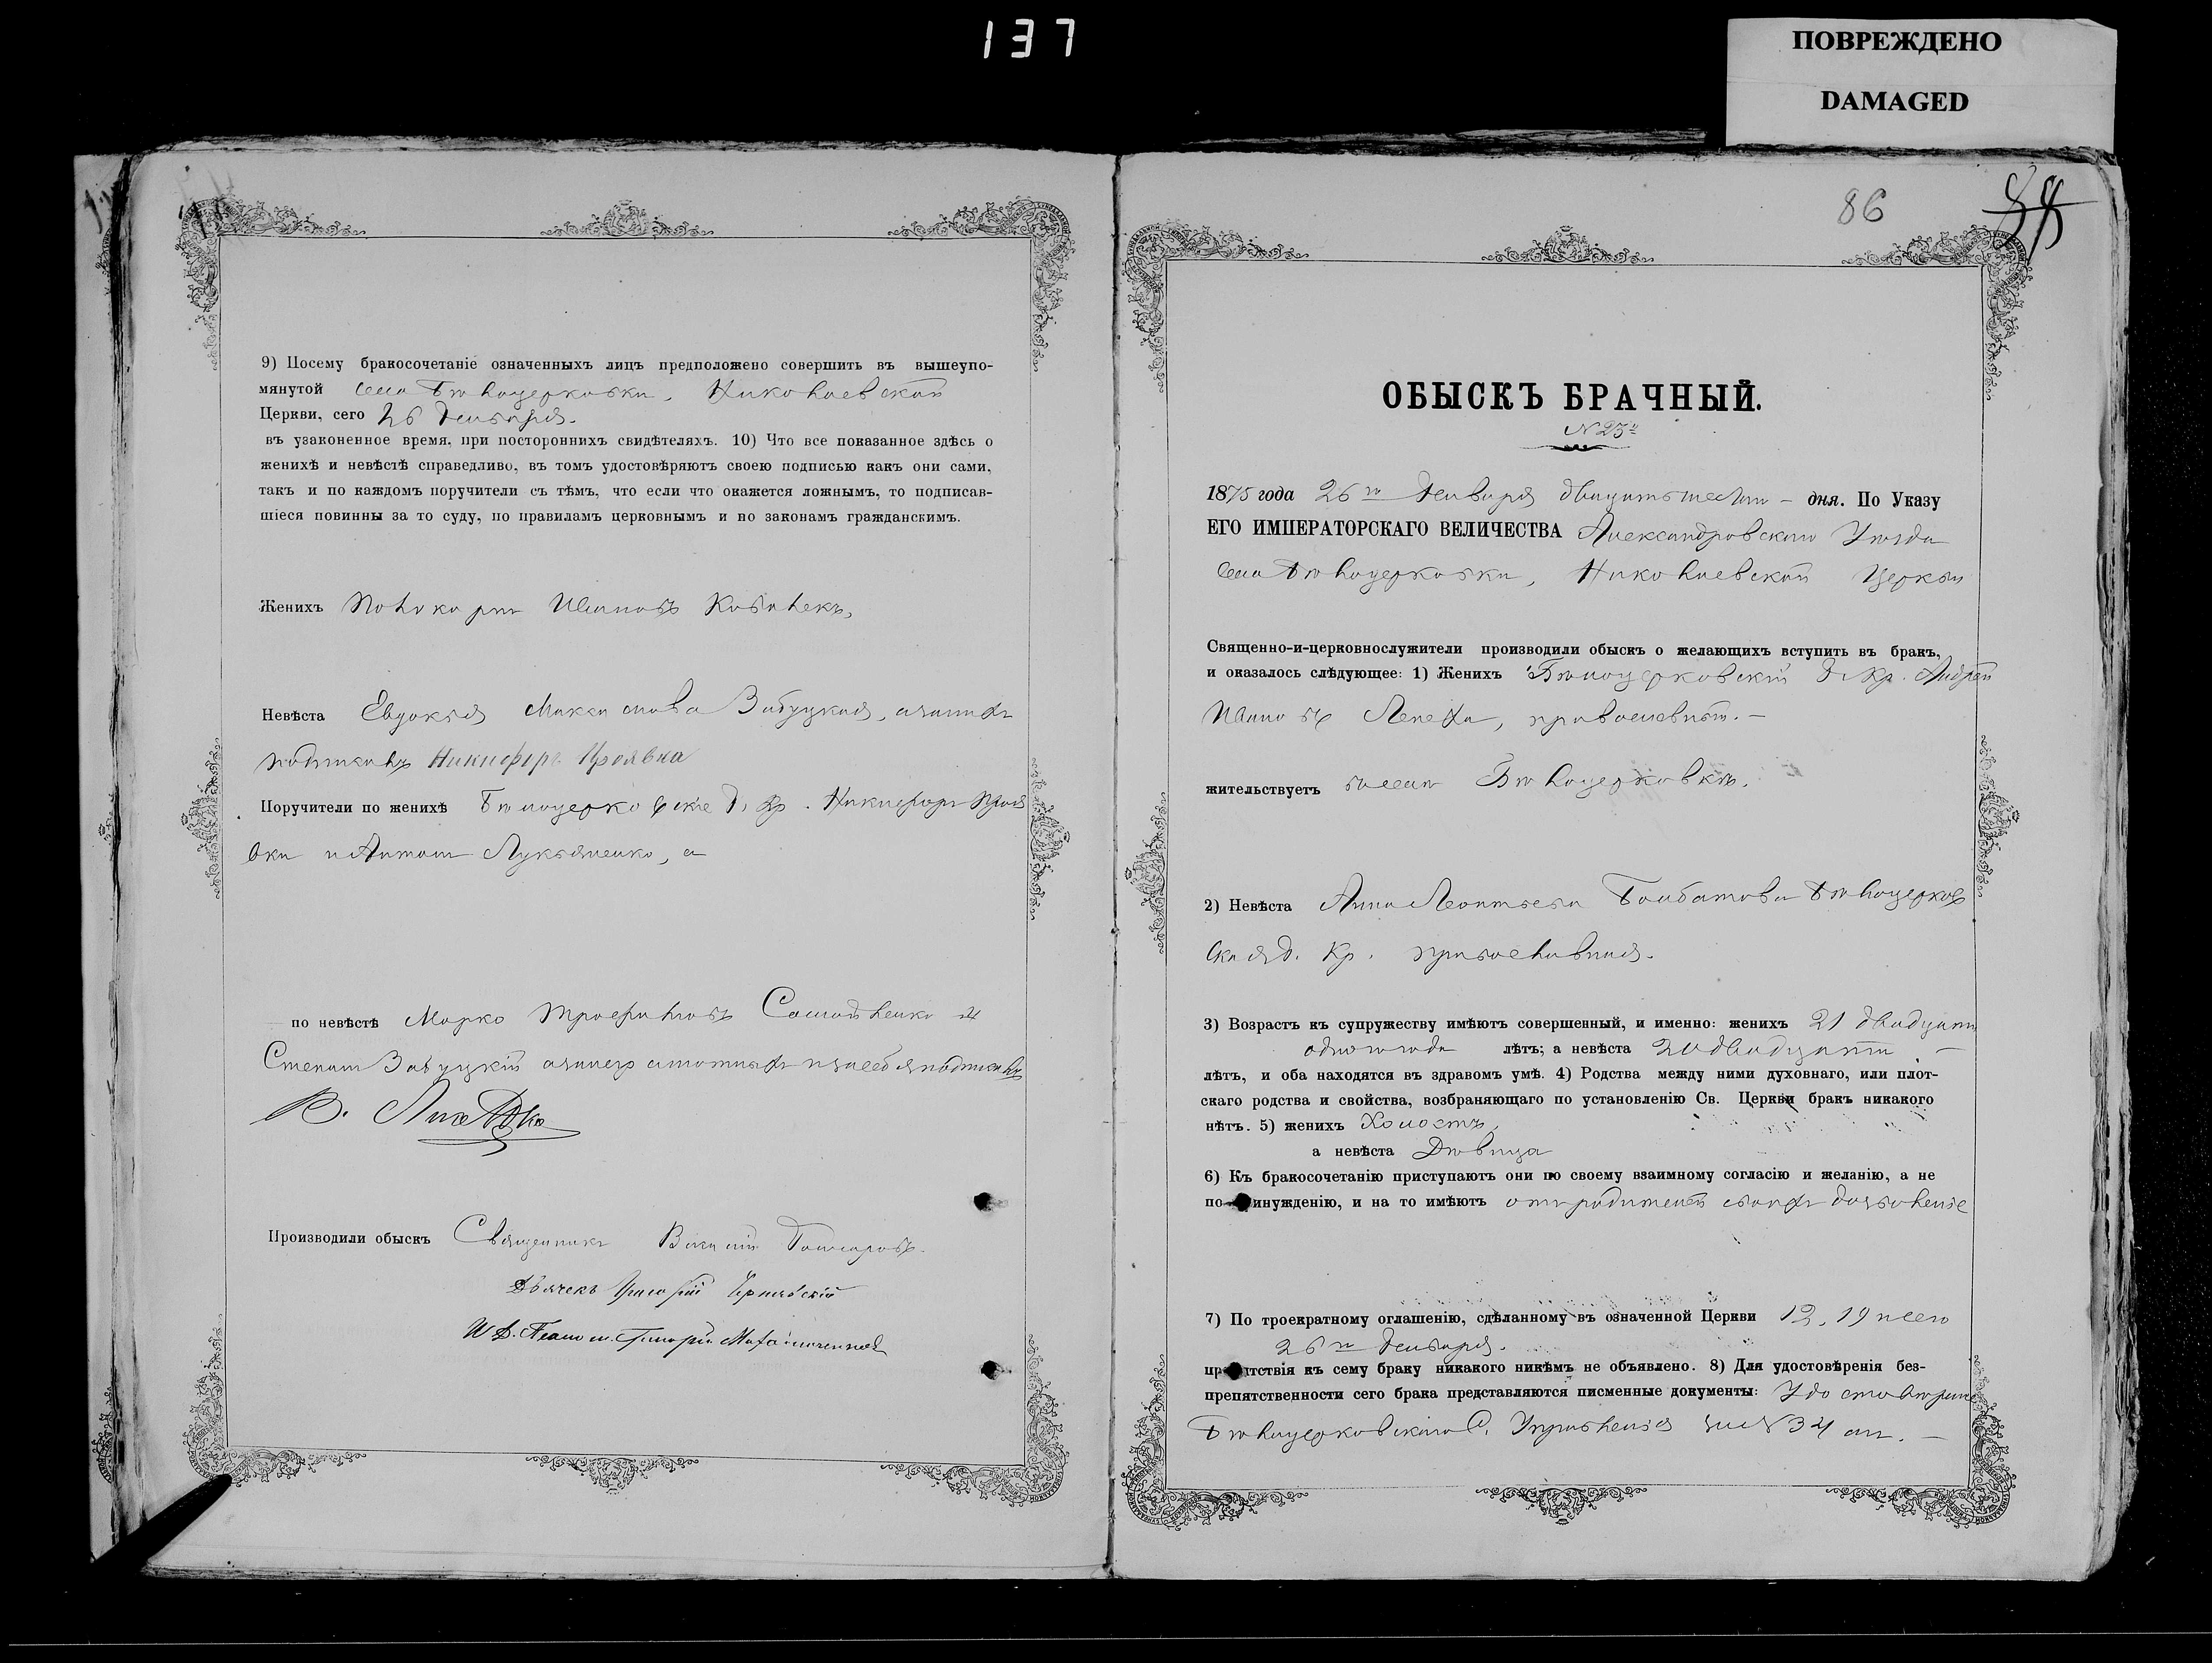 137
ПОВРЕЖДЕНО
DAMAGED
9) Посему бракосочетаніе означенныхъ лицъ предположено совершить въ вышеупо-
мянутой села Бѣлоцерковки, Николаевской
Церкви, сего 26 Января.
въ узаконенное время, при постороннихъ свидѣтеляхъ. 10) Что все показанное здѣсь о
женихѣ и невѣстѣ справедливо, въ томъ удостовѣряютъ своею подписью какъ они сами,
такъ и по каждомъ поручители съ тѣмъ, что если что окажется ложнымъ, то подписав-
шіеся повинны за то суду, по правиламъ церковнымъ и по законамъ гражданскимъ.
Женихъ Поликарпъ Ивановъ
Невѣста Евдокія Максимова Забуцкая, а за нихъ
Никифоръ
Поручители по женихѣ Бѣлоцерковскіе Г. Кр. Никифоръ
вка и Антонъ Лукьяненко, а
по невѣстѣ Марко Трофимовъ и
Степанъ Забуцкій а за неграмотныхъ и за себя подписалъ
В.
Производили обыскъ Священникъ Василій
Дьячекъ Григорій
86
ОБЫСКЪ БРАЧНЫЙ.
№ 23й
1875 года 26го Января двадцать шестаго – дня. По Указу
ЕГО ИМПЕРАТОРСКАГО ВЕЛИЧЕСТВА Александровскаго Уѣзда
села Бѣлоцерковки, Николаевской Церкви
Священно-и-церковнослужители производили обыскъ о желающихъ вступить въ бракъ,
и оказалось слѣдующее: 1) Женихъ Бѣлоцерковскій Г. Кр. Андрей
Ивановъ Лепеха, православный. –
жительствуетъ въ селѣ Бѣлоцерковкѣ.
2) Невѣста Анна Леонтьева Бѣлоцерков
ская Г. Кр. православная.
3) Возрастъ къ супружеству имѣютъ совершенный, и именно: женихъ 21 двадцати
одного года лѣтъ; а невѣста 20 двадцати –
лѣтъ, и оба находятся въ здравомъ умѣ. 4) Родства между ними духовнаго, или плот-
скаго родства и свойства, возбраняющаго по установленію Св. Церкви бракъ никакого
нѣтъ. 5) женихъ Холостъ,
а невѣста Дѣвица
6) Къ бракосочетанію приступаютъ они по своему взаимному согласію и желанію, а не
по инужденію, и на то имѣютъ отъ родителей своихъ дозволеніе
7) По троекратному оглашенію, сдѣланному въ означенной Церкви 12, 19 и сего
26го Января.
пр тствія къ сему браку никакого никѣмъ не объявлено. 8) Для удостовѣренія без-
препятственности сего брака представляются писменные документы: Удостовѣреніе
Бѣлоцерковскаго С. Управленія за № 34 –